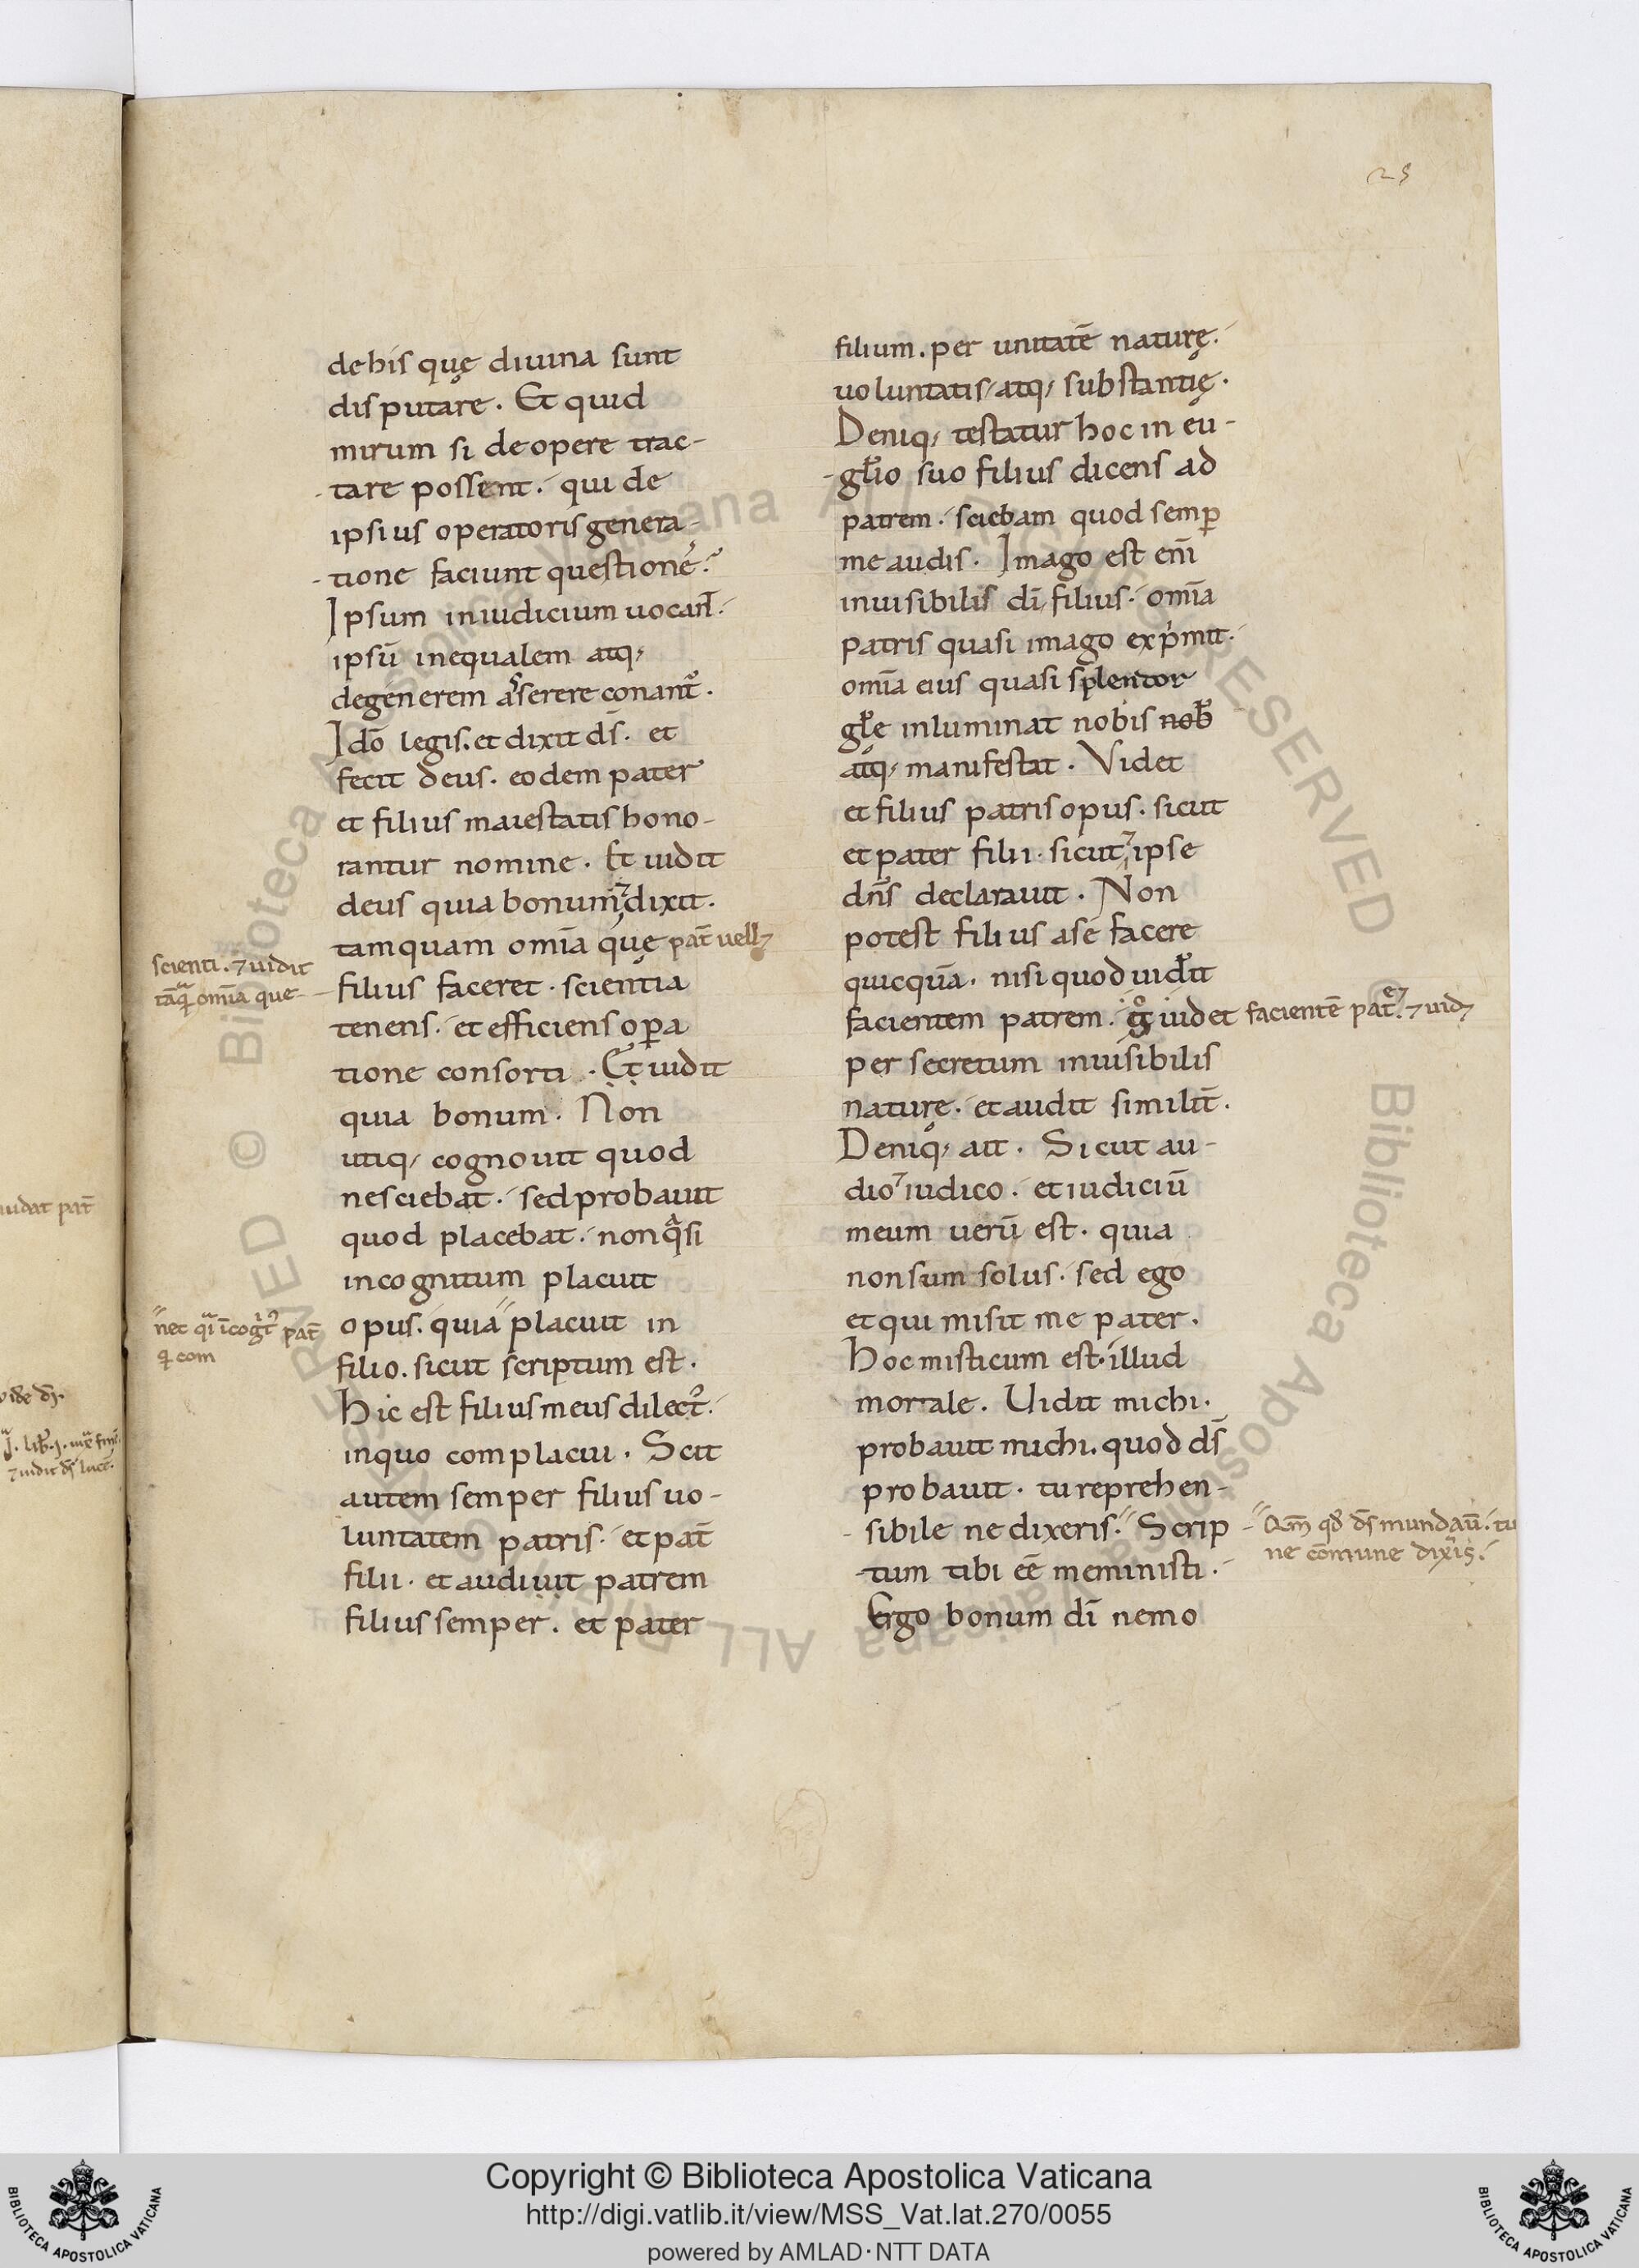 25
de his quę diuina sunt
disputare. Et quid
mirum si de opere trac-
-tare possent. qui de
ipsius operatoris genera-
-tione faciunt questionē?
Ipsum in iudicium uocant̄.
ipsū inequalem atq;
degenerem asserere conant᷑.
Idō legis. et dixit d̄s. et
fecit deus. eodem pater
et filius maiestatis hono-
rantur nomine. Et uidit
deus quia bonum ⁊ dixit.
tamquam om̄ia quę pat̄ uell⁊
filius faceret. scientia
tenens. et efficiens oꝑa
tione consorti. Et uidit
quia bonum. Non
utiq; cognouit quod
nesciebat. sed probauit
quod placebat. non qͣsi
incognitum placuit
opus. quia placuit in
filio. sicut scriptum est.
Hic est filius meus dilect᷒.
in quo complacui. Scit
autem semper filius uo-
luntatem patris. et pat̄
filii. et audiuit patrem
filius semper. et pater
scienti. ⁊ uidit
tāqͣ om̄ia que
nec qͣi īcogt᷒ pat̄
q com
filium. per unitatē naturę.
uoluntatis atq; substantię.
Deniq; testatur hoc in eu-
-gl̄io suo filius dicens ad
patrem. sciebam quod semꝑ
me audis. Imago est eni̅
inuisibilis dī filius. om̄ia
patris quasi imago exp̍mit.
om̄ia eius quasi splendor
gl̄e inluminat nobis nob̄
atq; manifestat. Videt
et filius patris opus. sicut
et pater filii. sicut ⁊ ipse
dn̄s declarauit. Non
potest filius a se facere
quicquā. nisi quod uid̄it
facientem patrem. gͦ uidet facientē pat̄e⁊. ⁊ uid⁊
per secretum inuisibilis
naturę. et audit similit̄.
Deniq; ait. Sicut au-
dio ⁊ iudico. et iudiciū
meum uerū est. quia
non sum solus. sed ego
et qui misit me pater.
Hoc misticum est. illud
mortale. Uidit michi.
probauit michi. quod d̄s
probauit. tu reprehen-
-sibile ne dixeris. Scrip
-tum tibi eē meministi.
Ergo bonum dī nemo
Qm̄ qd̓ d̄s mundau̅. tu
ne cōmune dix̍is.
iudat pat̄
Copyright © Biblioteca Apostolica Vaticana
http://digi.vatlib.it/view/MSS_Vat.lat.270/0055
powered by AMLAD·NTT DATA
BIBLIOTECA APOSTOLICA VATICANA
BIBLIOTECA APOSTOLICA VATICANA